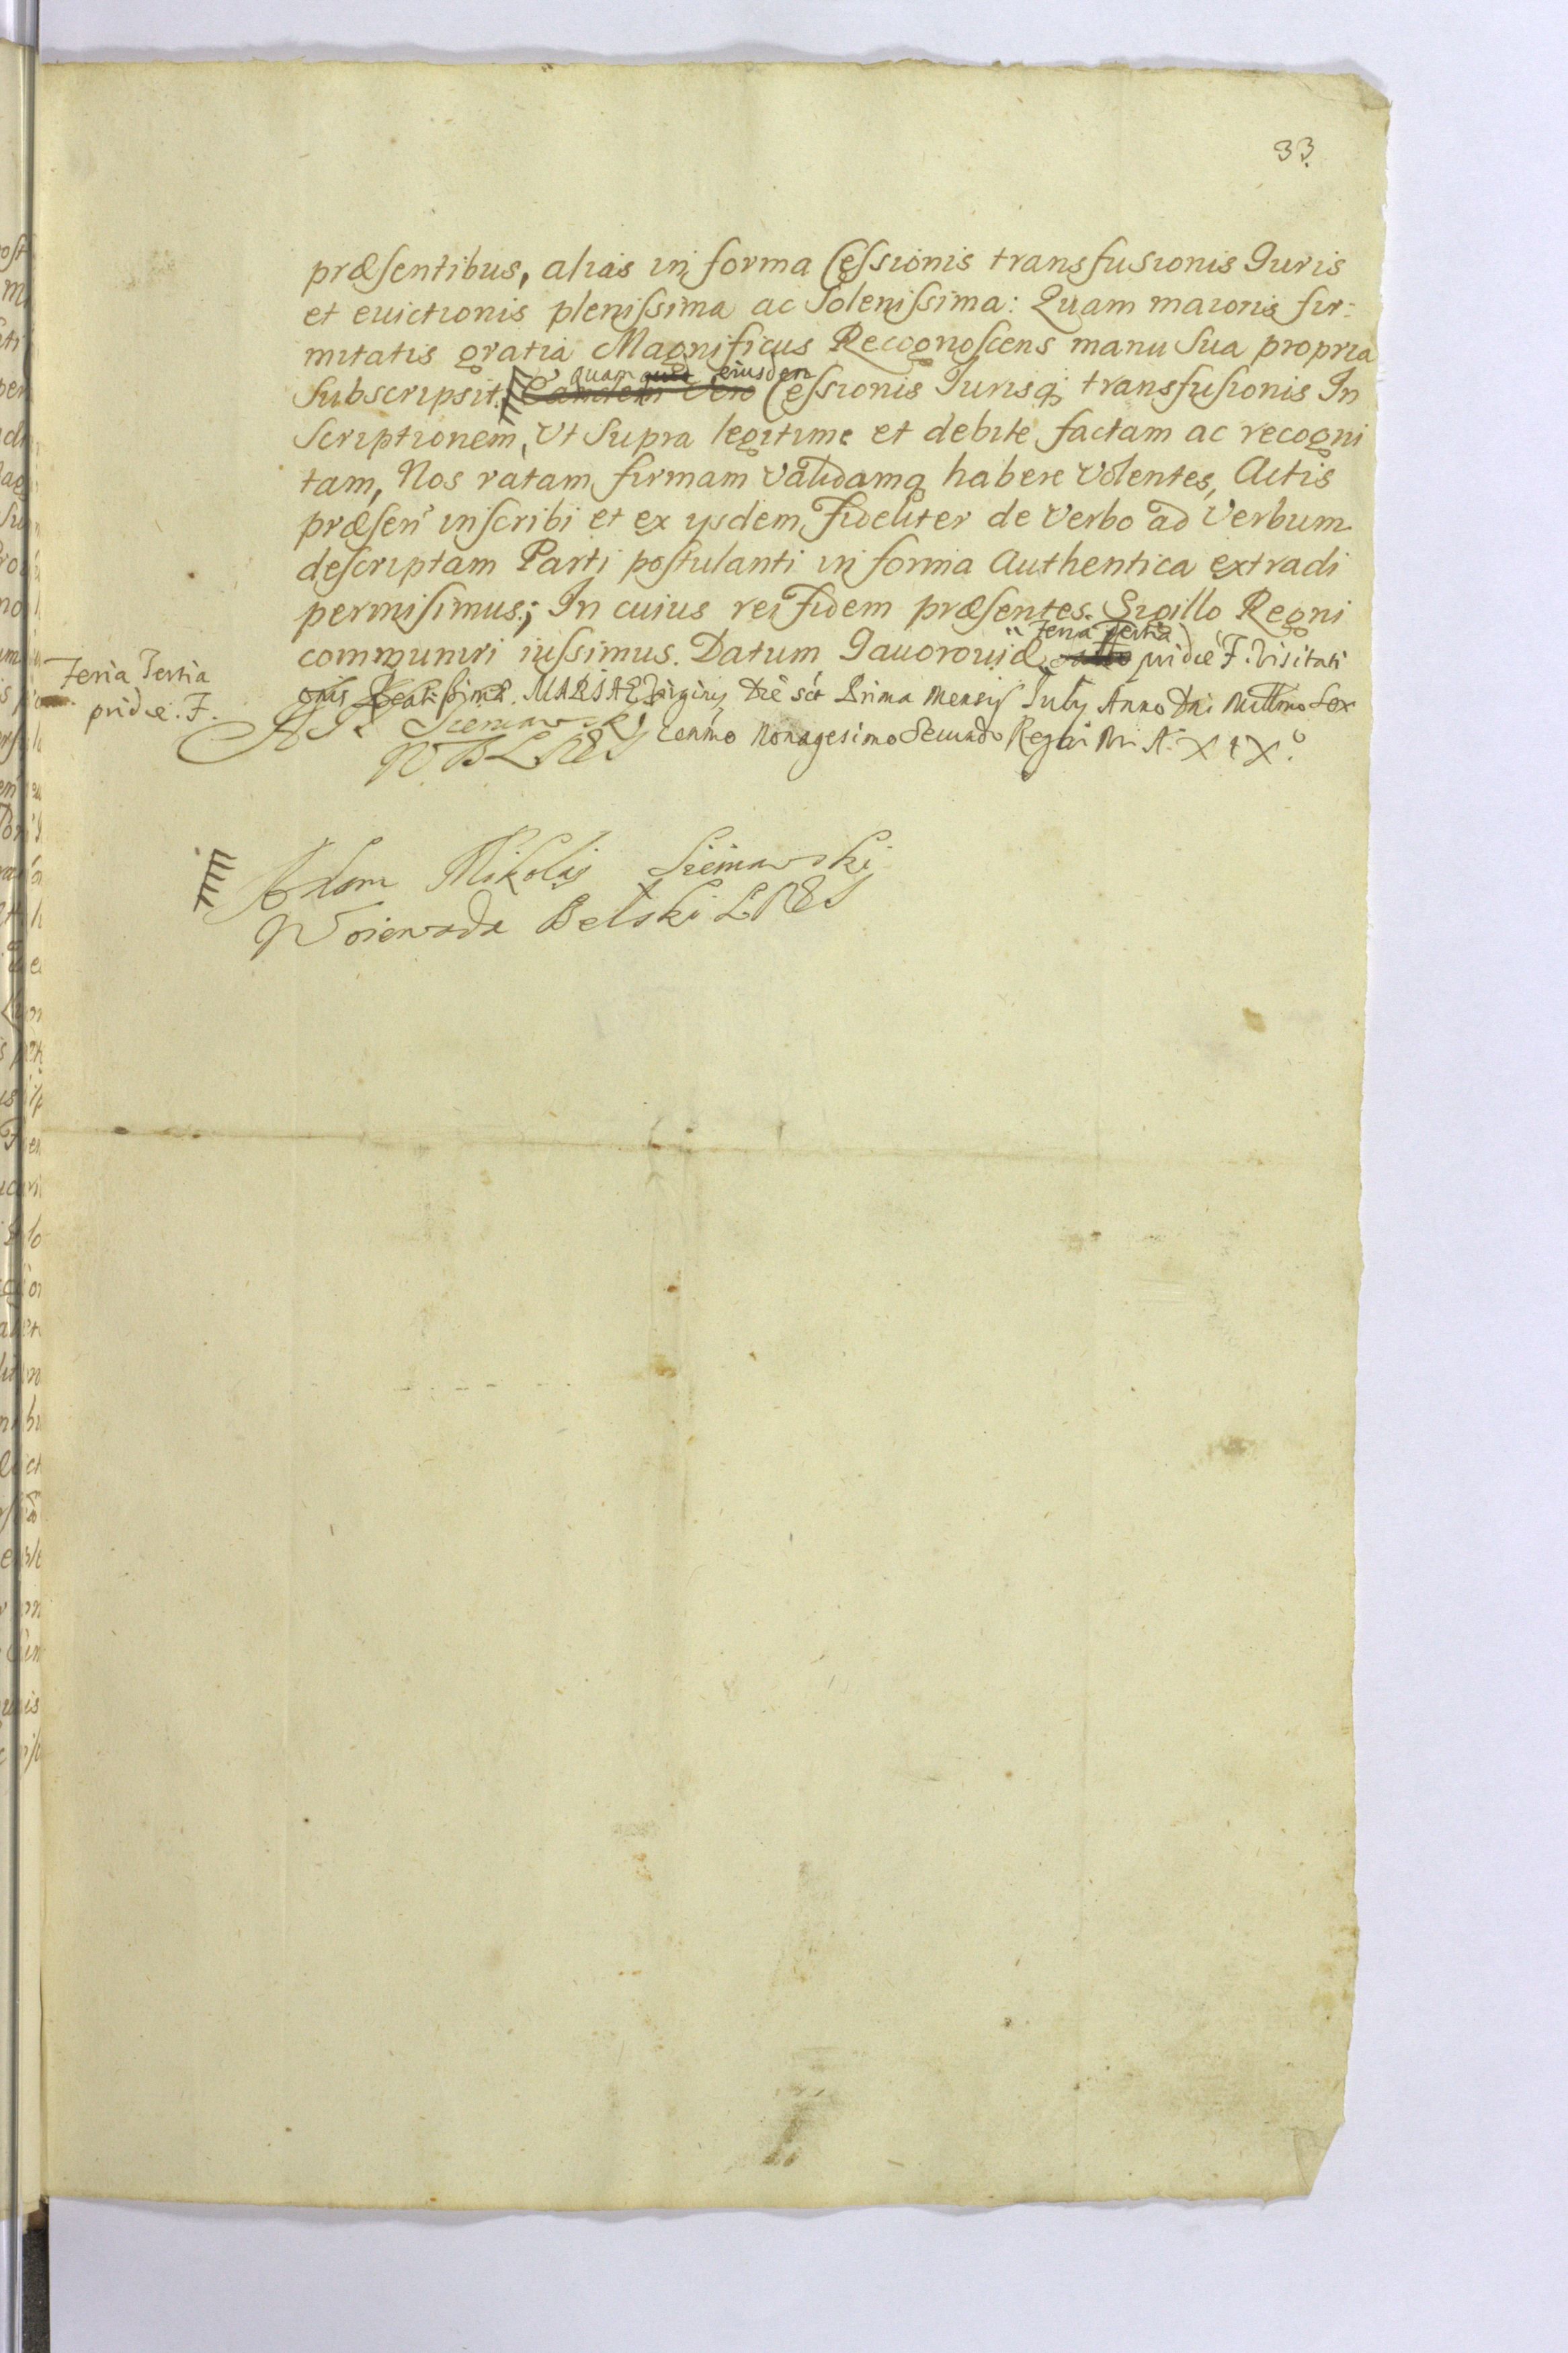 33.
præsentibus, alias in forma Cessionis transfusionis Iuris
et euictionis plenissima ac Solenissima: Quam maioris fir-
mitatis gratia Magnificus Recognoscens manu Sua propria
quam eiusdem
Subscripsit. Eamdem Vero Cessionis Iurisq; transfusionis In
scriptionem, Vt Supra legitime et debite factam ac recogni
tam, Nos ratam firmam Validamq habere Volentes, Actis
præsen inscribi et ex ijsdem Fideliter de Verbo ad Verbum
descriptam Parti postulanti in forma Authentica extradi
permisimus; In cuius rei Fidem præsentes Sigillo Regni
Feria Tertia
communiri iussimus. Datum Iauorouiæ pridie F. Visitati
Feria Tertia
pridie. F.
onis Beatissimæ MARIAE Virginis Die scit Prima Mensis July Anno Dni Millmo Sex
centmo Nonagesimo Secundo Regni Nri A. XIX°.
A M Sieniawski
W B L R S
Adam Mikolaj Sieniawski
Woiewoda Belski